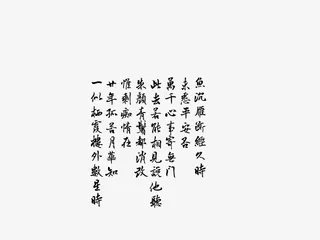 魚沉雁斷經久時
未悉平安否
萬千心事寄無門
此去若能相見說他聽
朱顏青鬢都消改
惟剩痴情在
廿年孤苦月華知
一似栖霞樓外數星時